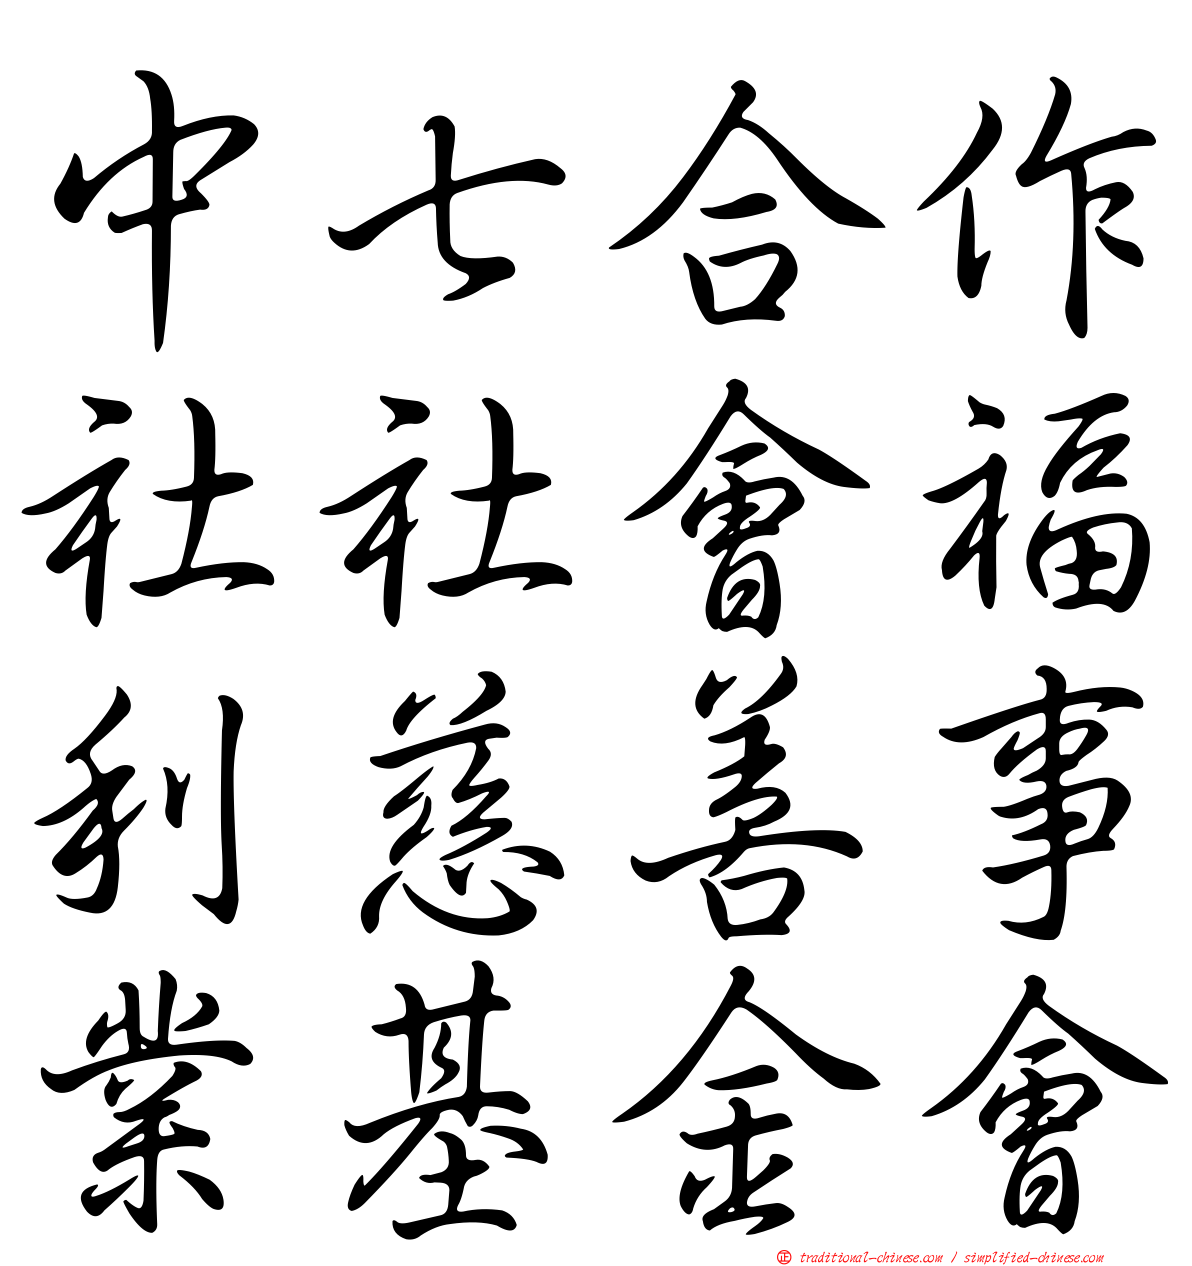 中七合作
社社會福
利慈善事
業基金會
正 traditional-chinese.com / simplified-chinese.com